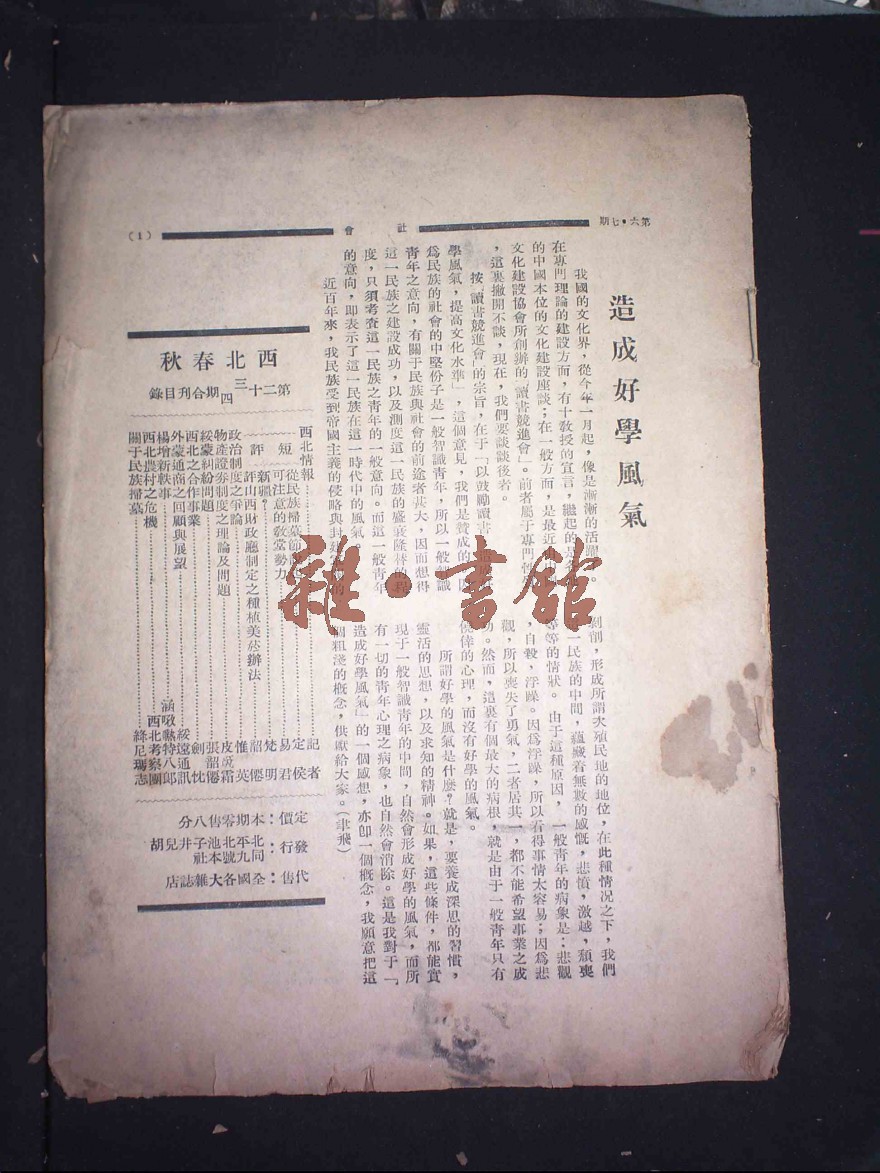 第六•七期
社會
(1)
造成好學風氣
我國的文化界，從今年一月起，像是漸漸的活躍
在專門理論的建設方面，有十教授的宣言，繼起的是
的中國本位的文化建設座談；在一般方面，是最近
文化建設協會所創辦的「讀書競進會」。前者屬于專門性
，這裏撇開不談，現在，我們要談談後者。
按「讀書競進會」的宗旨，在于「以鼓勵讀書
學風氣，提高文化水準」，這個意見，我們是贊成的
爲民族的社會的中堅份子是一般智識青年，所以一般智識
青年之意向，有關于民族與社會的前途者甚大，因而想得
這一民族之建設成功，以及測度這一民族的盛衰隆替的程
度，只須考查這一民族之青年的一般意向。而這一般青年
的意向，即表示了這一民族在這一時代中的風氣。
近百年來，我民族受到帝國主義的侵略與封建
剝削，形成所謂次殖民地的地位，在此種情况之下，我們
一民族的中間，蘊藏着無數的感慨，悲憤，激越，頹喪
等等的情狀。由于這種原因，一般青年的病象是：悲觀
，自毀，浮躁。因爲浮躁，所以看得事情太容易；因爲悲
觀，所以喪失了勇氣，二者居其一，都不能希望事業之成
功。然而，這裏有個最大的病根，就是由于一般青年只有
僥倖的心理，而沒有好學的風氣。
所謂好學的風氣是什麼？就是，要養成深思的習慣，
靈活的思想，以及求知的精神。如果，這些條件，都能實
現于一般智識青年的中間，自然會形成好學的風氣，而所
有一切的青年心理之病象，也自然會消除。這是我對于「
造成好學風氣」的一個感想，亦卽一個概念，我願意把這
個粗淺的概念，供獻給大家。（聿飛）
西北春秋
第二十三四期合刊目錄
西北情報 記者
短評
從民族掃墓節 定侯
可注意的敎堂勢力 易君
新疆 梵明
評山西財政廳制定之種植美菸辦法 韶僊
政治制度之爭論 惟英
物產證券制度之理論及問題 皮兆霜
綏蒙糾紛問題 張韶僊
西北之合作事業 劍忱
外蒙通商之回顧與展望 綏遠通訊
楊增新軼事 涵啾黙特八郎
西北農村之危機 西北考察團
關于民族掃墓 綘尼瑪志
定價：本期零售八分
發行：北平北池子井兒胡同九號本社
代售：全國各大雜誌店
雜·書館